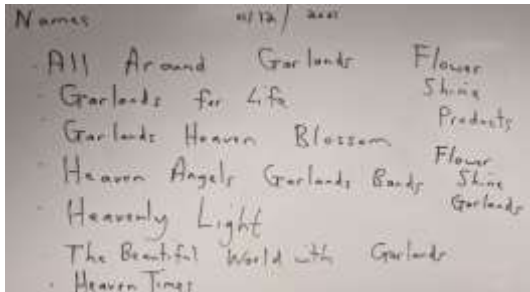 Names
11/12/2021
All Around Garlands
Garlands for Life
Garlands Heaven Blossom
Heaven Angels Garlands Bands
Heavenly Light
The Beautiful World with Garlands
Heaven Times
Flower
Shine
Products
Flower
Shine
Garlands